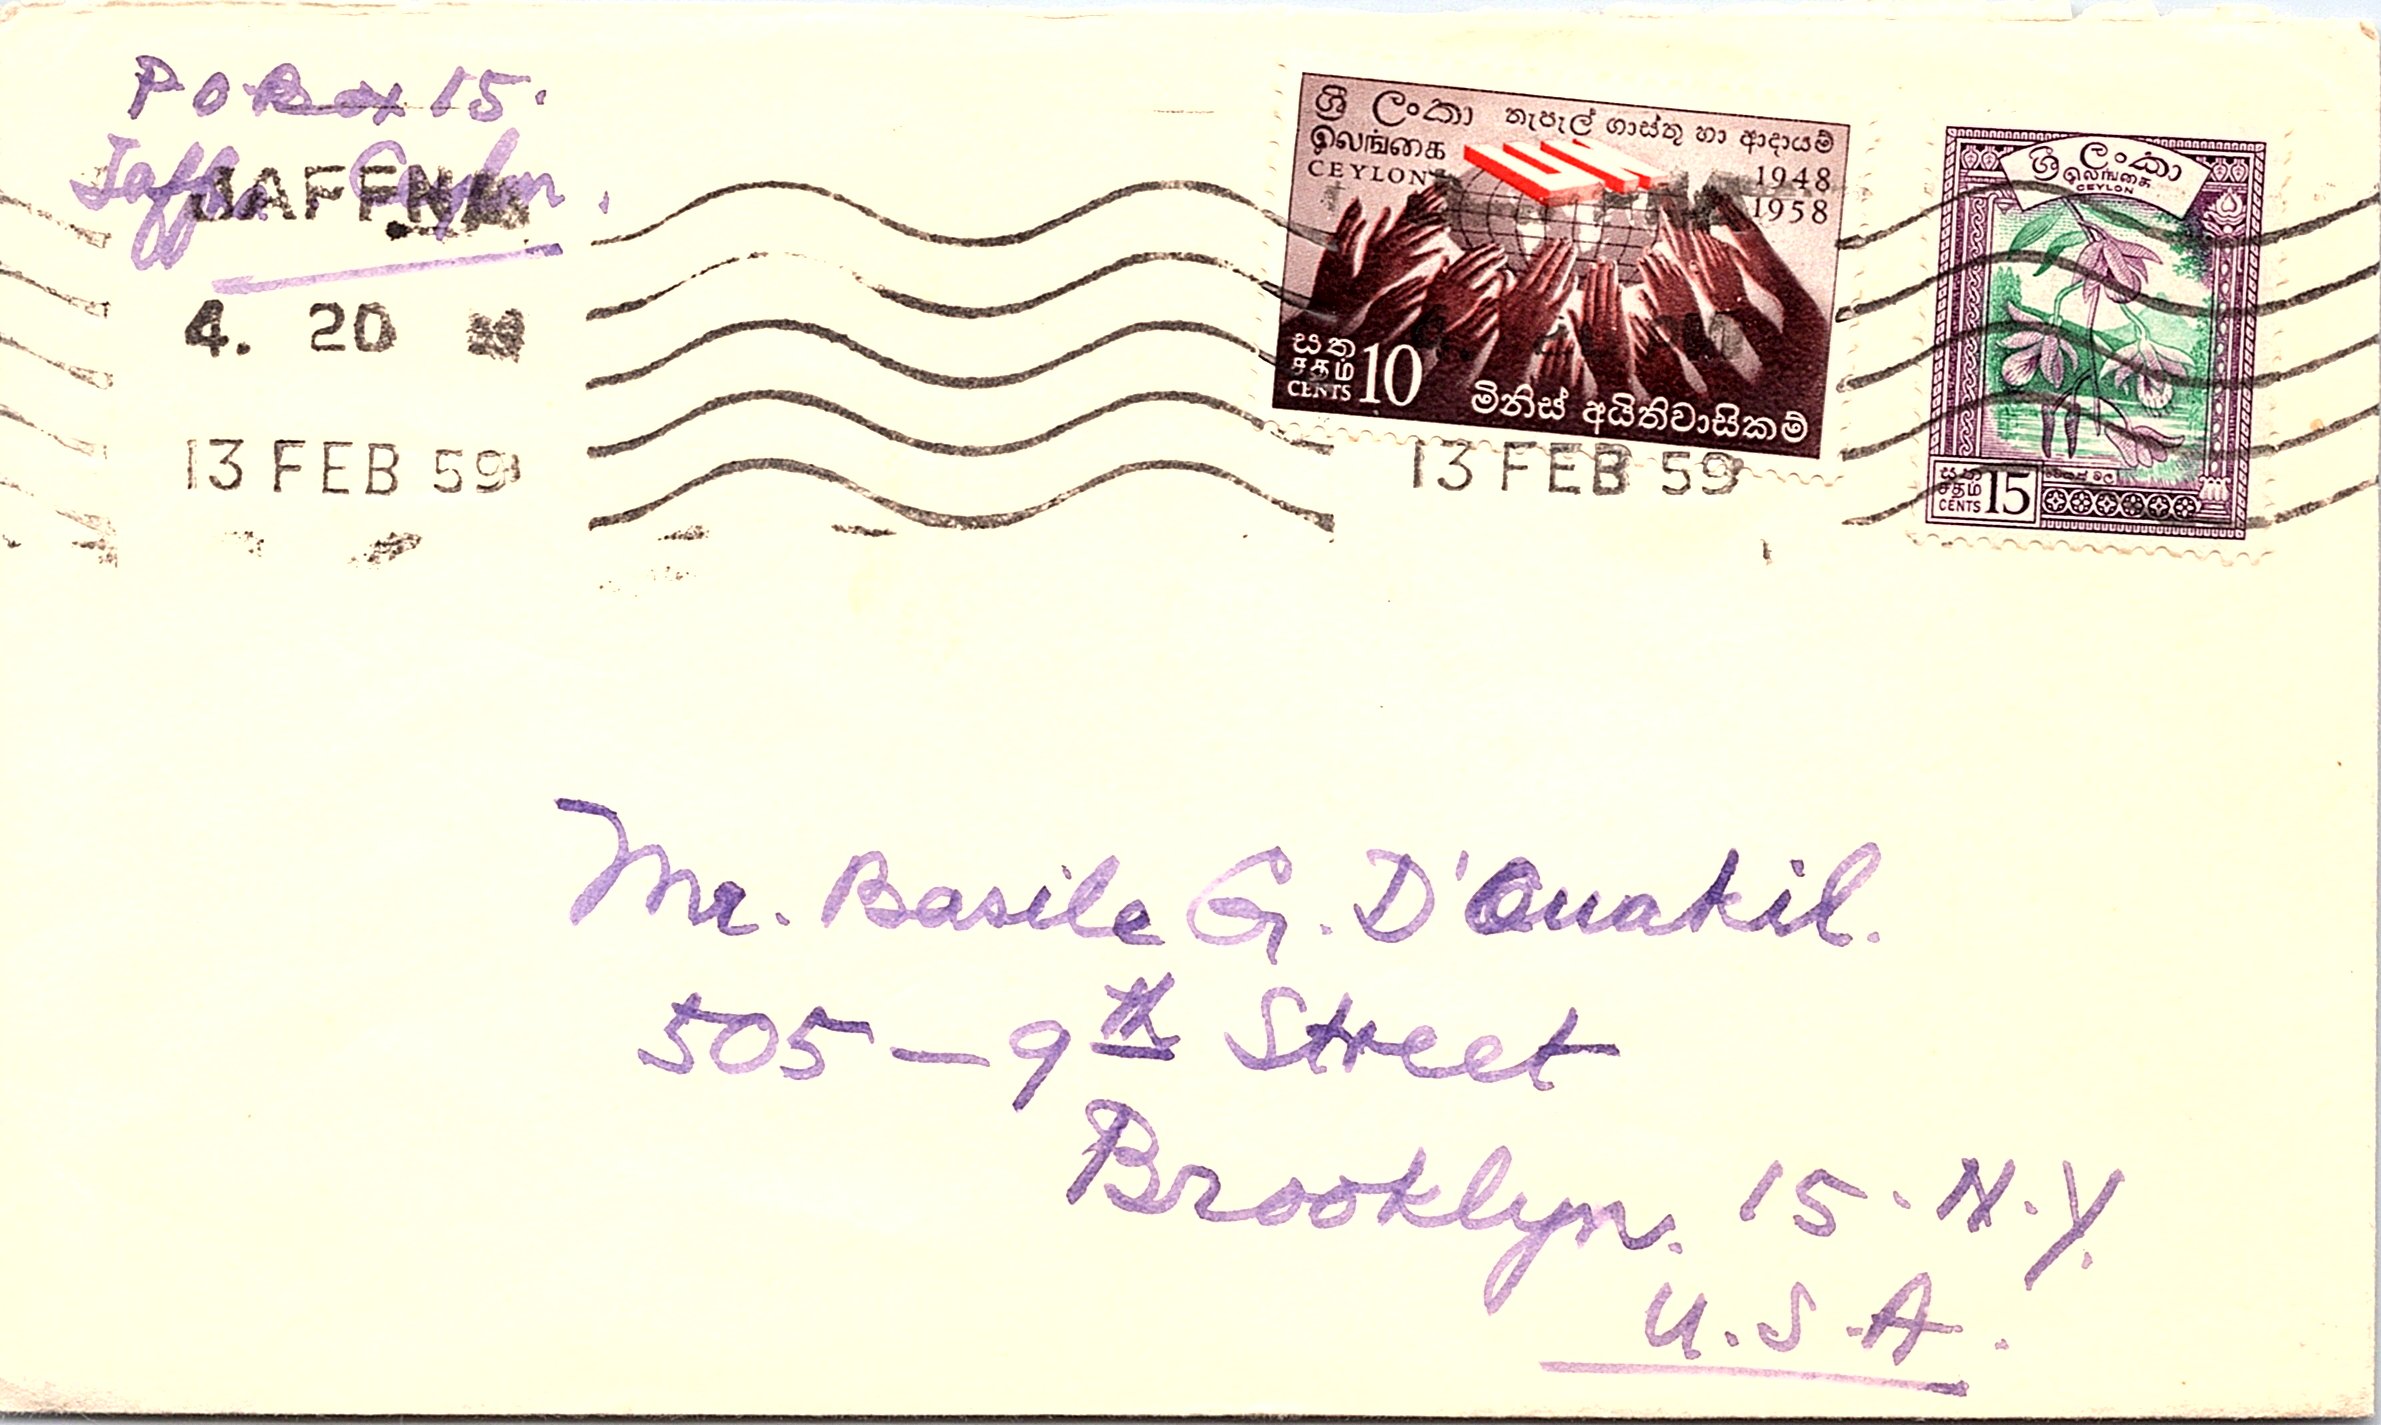 P O Box 15.
Jaffna Ceylon.
JAFFNA
4. 20
13 FEB 59
ශ්‍රී ලංකා තැපැල් ගාස්තු හා ආදායම්
இலங்கை
CEYLON
UN
1948
1958
සත
சதம்
CENTS 10
මිනිස් අයිතිවාසිකම්
13 FEB 59
ශ්‍රී ලංකා
இலங்கை
CEYLON
සත
சதம்
CENTS 15
Mr. Basile G. D'Ouakil.
505 — 9th Street
Brooklyn. 15. N.Y.
U.S.A.